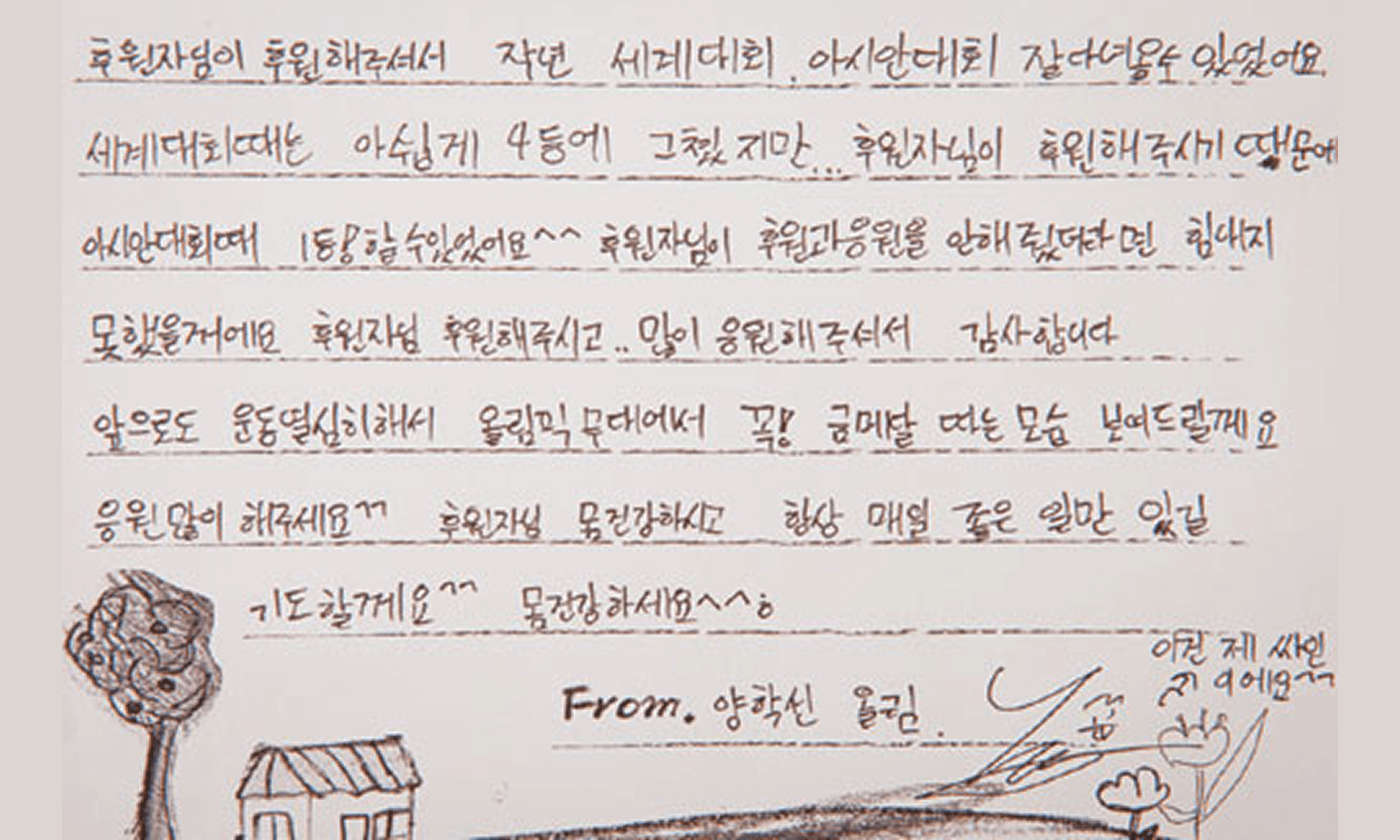 후원자님이 후원해주셔서 작년 세계대회, 아시안대회 잘다녀올수 있었어요.
세계대회때는 아쉽게 4등에 그쳤지만... 후원자님이 후원해주시기 때문에
아시안대회때 1등! 할수있었어요^^ 후원자님이 후원과응원을 안해줬더라면 힘내지
못했을꺼에요 후원자님 후원해주시고.. 많이 응원해주셔서 감사합니다
앞으로도 운동열심히해서 올림픽무대에서 꼭! 금메달 따는모습 보여드릴께요
응원많이 해주세요^^ 후원자님 몸건강하시고 항상 매일 좋은 일만 있길
기도할께요^^ 몸건강하세요^^ㅎ
이건 제 싸인
이에요^^
From. 양학선 올림.